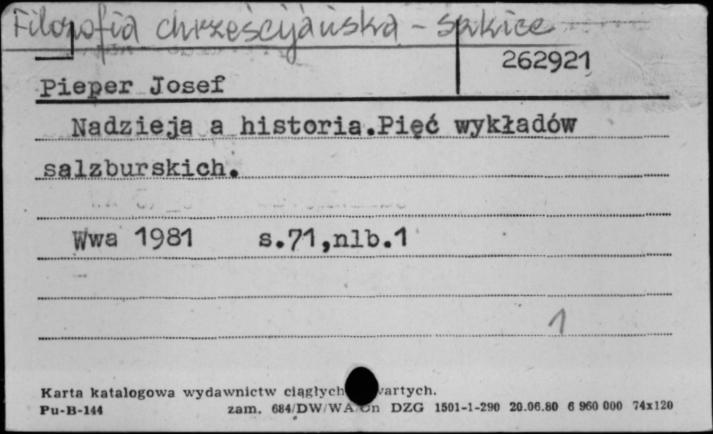 Filozofia chrześcijańska - szkice
262921
Pieper Josef
Nadzieja a historia.Pięć wykładów
salzburskich.
Wwa 1981 s.71,nlb.1
1
Karta katalogowa wydawnictw ciągłych wartych.
Pu-B-144 zam. 684/DW/WA/Un DZG 1501-1-290 20.06.80 6 960 000 74x120